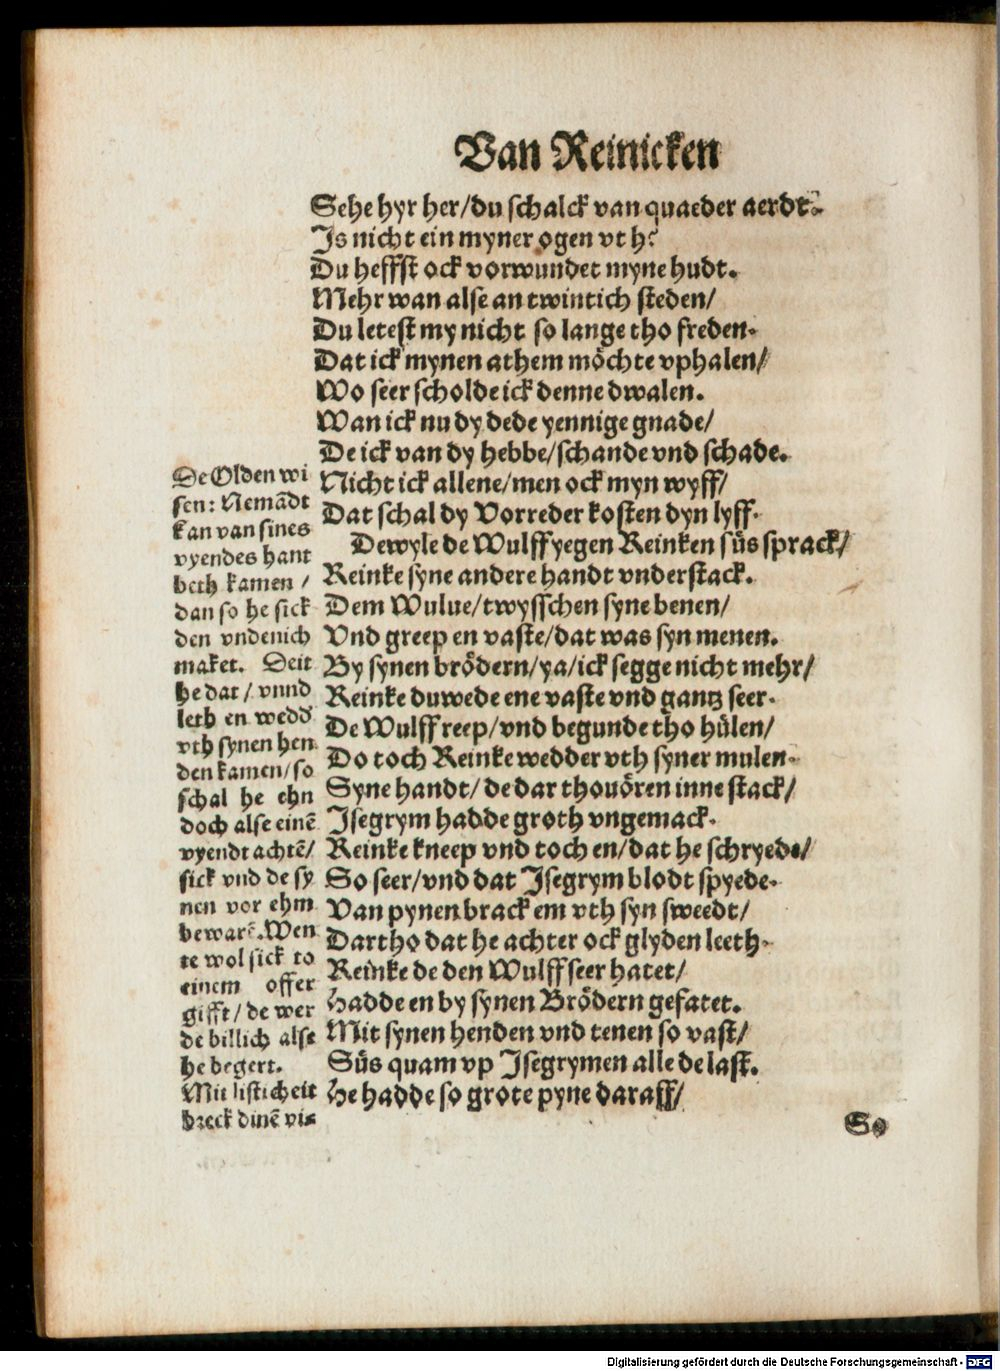 Van Reinicken
Sehe hyr her/du schalck van quaeder aerdt.
Is nicht ein myner ogen vth
Du heffst ock vorwundet myne hudt.
Mehr wan alse an twintich steden/
Du letest my nicht so lange tho freden.
Dat ick mynen athem möchte vphalen/
Wo seer scholde ick denne dwalen.
Wan ick nu dy dede yennige gnade/
De ick van dy hebbe/schande vnd schade.
Nicht ick allene/men ock myn wyff/
Dat schal dy Vorreder kosten dyn lyff.
Dewyle de Wulff yegen Reinken süs sprack/
Reinke syne andere handt vnderstack.
Dem Wulue/twysschen syne benen/
Vnd greep en vaste/dat was syn menen.
By synen brödern/ya/ick segge nicht mehr/
Reinke duwede ene vaste vnd gantz seer.
De Wulff reep/vnd begunde tho hülen/
Do toch Reinke wedder vth syner mulen.
Syne handt/de dar thouören inne stack/
Isegrym hadde groth vngemack.
Reinke kneep vnd toch en/dat he schryede/
So seer/vnd dat Isegrym blodt spyede.
Van pynen brack em vth syn sweedt/
Dartho dat he achter ock glyden leeth.
Reinke de den Wulff seer hatet/
Hadde en by synen Brödern gefatet.
Mit synen henden vnd tenen so vast/
Süs quam vp Isegrymen alle de last.
He hadde so grote pyne daraff/
So
De Olden wi
sen: Nemādt
kan van sines
vyendes hant
beth kamen /
dan so he sick
den vndenich
maket. Deit
he dat / vnnd
leth en wedd
vth synen hen
den kamen/so
schal he ehn
doch alse einē
vyendt achtē/
sick vnd de sy
nen vor ehm
bewarē. Wen
te wol sick to
einem offer
gifft/ de wer
de billich alse
he begert.
Mit listicheit
breck dinē vi=
Digitalisierung gefördert durch die Deutsche Forschungsgemeinschaft - DFG